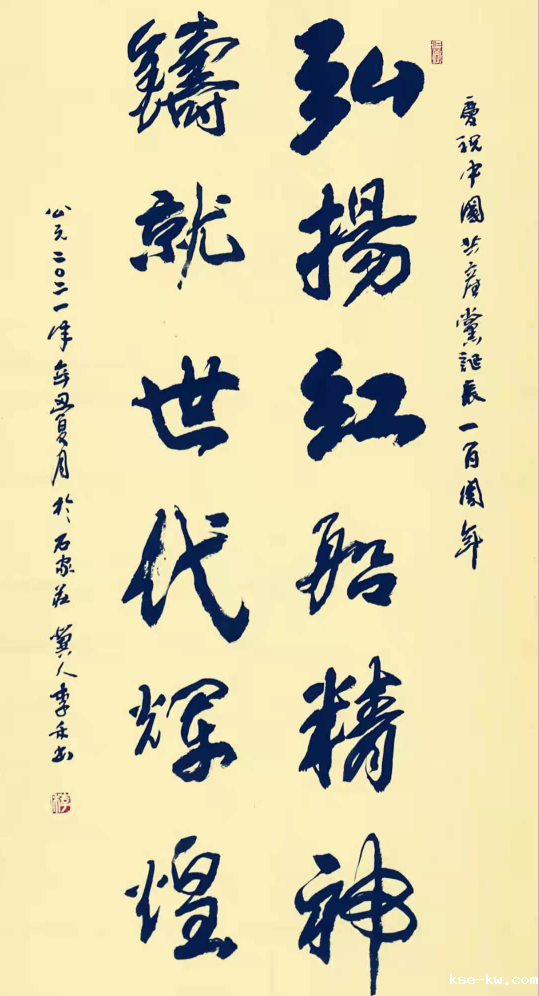 慶祝中國共產黨誕辰一百周年
弘揚紅船精神
鑄就世代輝煌
公元二〇二一年辛丑夏月於石家莊冀人李禾书
kse-kw.com